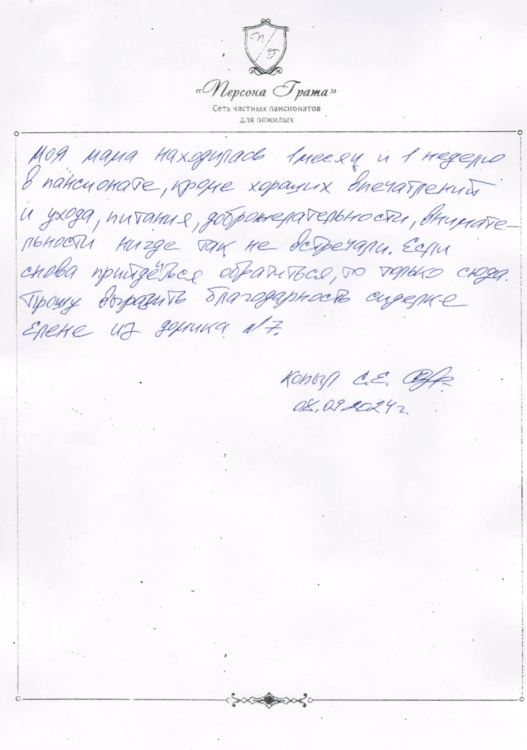 П Г
«Персона Грата»
Сеть частных пансионатов
для пожилых
Моя мама находилась 1 месяц и 1 неделю
в пансионате, кроме хороших впечатлений
и ухода, питания, доброжелательности, внимате-
льности нигде так не встречали. Если
снова прийдёться обратиться, то только сюда.
Прошу выразить благодарность сиделке
Елене из домика №7.
Копыл С.Е.
08.09.2024г.